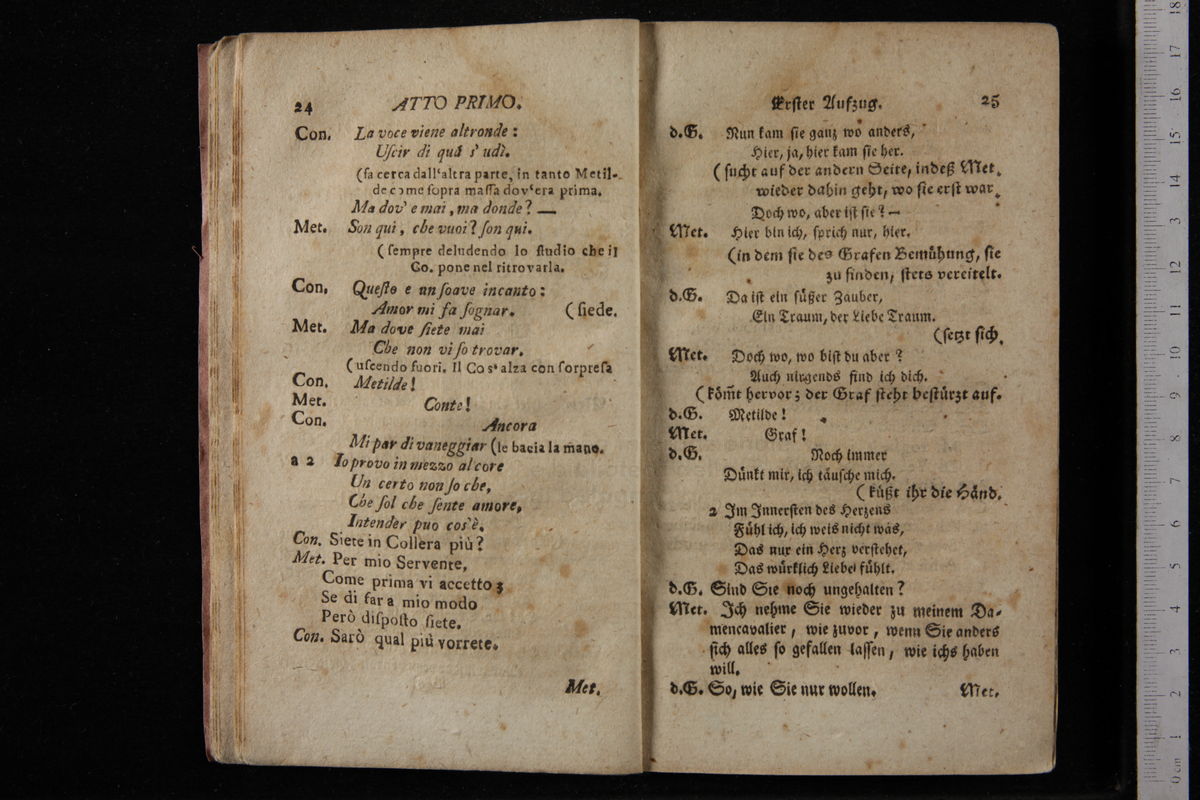 24 ATTO PRIMO.
Con. La voce viene altronde :
Uſcir di quá s' udì.
(fa cerca dall'altra parte, in tanto Metil-
de come ſopra maſſa dov'era prima.
Ma dov' e mai, ma donde? —
Met. Son qui, che vuoi? ſon qui.
( ſempre deludendo lo ſtudio che il
Co. pone nel ritrovarla.
Con, Queſto e un ſoave incanto :
Amor mi fa ſognar. ( ſiede.
Met. Ma dove ſiete mai
Che non vi ſo trovar.
( uſcendo fuori. Il Co s' alza con ſorpreſa
Con. Metilde!
Met. Conte!
Con. Ancora
Mi par di vaneggiar (le bacia la mano.
a 2 Io provo in mezzo al core
Un certo non ſo che,
Che ſol che ſente amore,
Intender puo cos'è.
Con. Siete in Collera più?
Met. Per mio Servente,
Come prima vi accetto;
Se di far a mio modo
Però diſpoſto ſiete.
Con. Sarò qual più vorrete.
Met.
Erſter Aufzug. 25
d.G. Nun kam ſie ganz wo anders,
Hier, ja, hier kam ſie her.
( ſucht auf der andern Seite, indeß Met.
wieder dahin geht, wo ſie erſt war.
Doch wo, aber iſt ſie? —
Met. Hier bin ich, ſprich nur, hier.
(in dem ſie des Grafen Bemühung, ſie
zu finden, ſtets vereitelt.
d.G. Da iſt ein ſüßer Zauber,
Ein Traum, der Liebe Traum.
(ſetzt ſich.
Met. Doch wo, wo biſt du aber?
Auch nirgends find ich dich.
( köm̃t hervor; der Graf ſteht beſtürzt auf.
d.G. Metilde!
Met. Graf!
d.G. Noch immer
Dünkt mir, ich täuſche mich.
( küßt ihr die Händ.
2 Im Innerſten des Herzens
Fühl ich, ich weis nicht was,
Das nur ein Herz verſtehet,
Das würklich Liebe fühlt.
d.G. Sind Sie noch ungehalten?
Met. Ich nehme Sie wieder zu meinem Da-
mencavalier, wie zuvor, wenn Sie anders
ſich alles ſo gefallen laſſen, wie ichs haben
will.
d.G. So, wie Sie nur wollen. Met.
0 cm 1 2 3 4 5 6 7 8 9 10 11 12 13 14 15 16 17 18